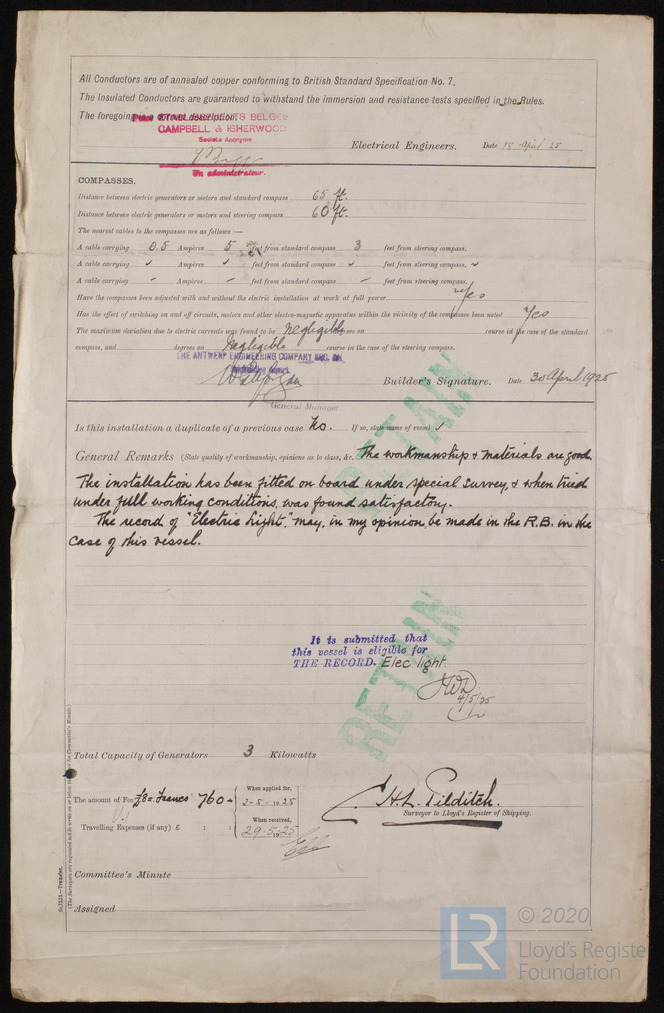 All Conductors are of annealed copper conforming to British Standard Specification No. 7.
The Insulated Conductors are guaranteed to withstand the immersion and resistance tests specified in the Rules.
The foregoing is a correct description.
ETABLISSEMENTS BELGES
CAMPBELL & ISHERWOOD
Société Anonyme
Electrical Engineers. Date 18 April 25
Un administrateur.
COMPASSES.
Distance between electric generators or motors and standard compass 65 ft.
Distance between electric generators or motors and steering compass 60 ft.
The nearest cables to the compasses are as follows :—
A cable carrying 0.5 Ampères 5 feet from standard compass 3 feet from steering compass.
A cable carrying ✓ Ampères ✓ feet from standard compass ✓ feet from steering compass. ✓
A cable carrying – Ampères – feet from standard compass – feet from steering compass.
Have the compasses been adjusted with and without the electric installation at work at full power Yes
Has the effect of switching on and off circuits, motors and other electro-magnetic apparatus within the vicinity of the compasses been noted Yes
The maximum deviation due to electric currents was found to be Negligible degrees on course in the case of the standard
compass, and Negligible degrees on course in the case of the steering compass.
THE ANTWERP ENGINEERING COMPANY
Builder's Signature. Date 30 April 1925
General Manager.
Is this installation a duplicate of a previous case No. If so, state name of vessel ✓
General Remarks (State quality of workmanship, opinions as to class, &c. The workmanship & materials are good.
The installation has been fitted on board under special survey, & when tried
under full working conditions, was found satisfactory.
The record of "Electric Light," may, in my opinion, be made in the R.B. in the
case of this vessel.
RETAIN
It is submitted that
this vessel is eligible for
THE RECORD. Elec. light.
4/5/25
RETAIN
Total Capacity of Generators 3 Kilowatts
The amount of Fee £8= Francs 760- When applied for, 2-5-1925
Travelling Expenses (if any) £ : : When received, 29.5.1925
H.L. Pilditch.
Surveyor to Lloyd's Register of Shipping.
Committee's Minute
Assigned
© 2020
Lloyd's Register
Foundation
LR